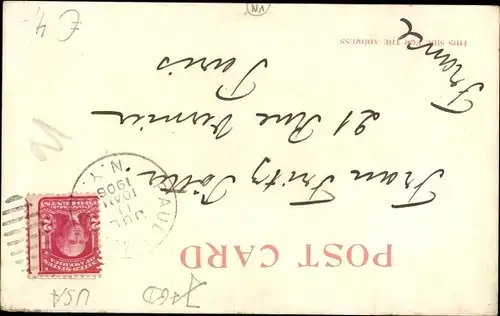 POST CARD
THIS SIDE FOR THE ADDRESS
PAUL
JUL
11
10AM
1906
N.Y.
2
Frau Fritz
21 Rue Vernier
Paris
France
€ 4,-
VN
USA